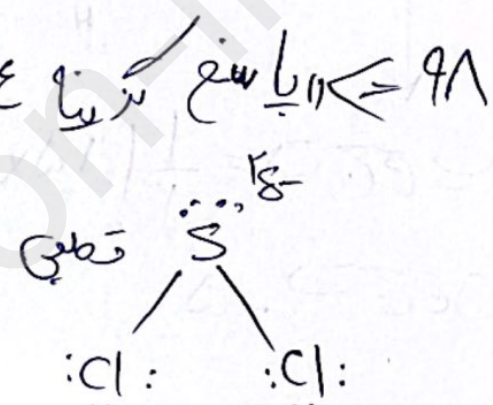 ۹۸ <= پاسخ گزینه ۴
۲δ-
قطبی
S
:Cl: :Cl: